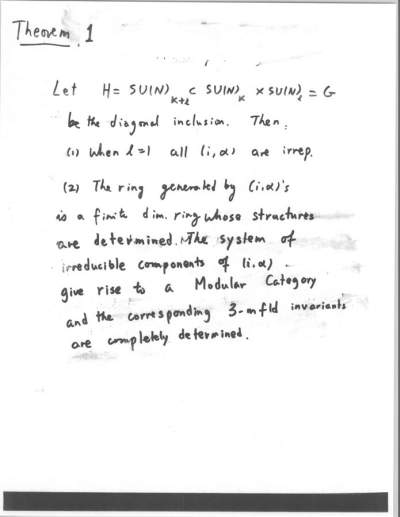 Theorem. 1
Let H = SU(N)_{k+l} ⊂ SU(N)_k × SU(N)_l = G
be the diagonal inclusion. Then:
(1) when l=1 all (i,α) are irrep.
(2) The ring generated by (i,α)'s
is a finite dim. ring whose structures
are determined. The system of
irreducible components of (i,α)
give rise to a Modular Category
and the corresponding 3-mfld invariants
are completely determined.